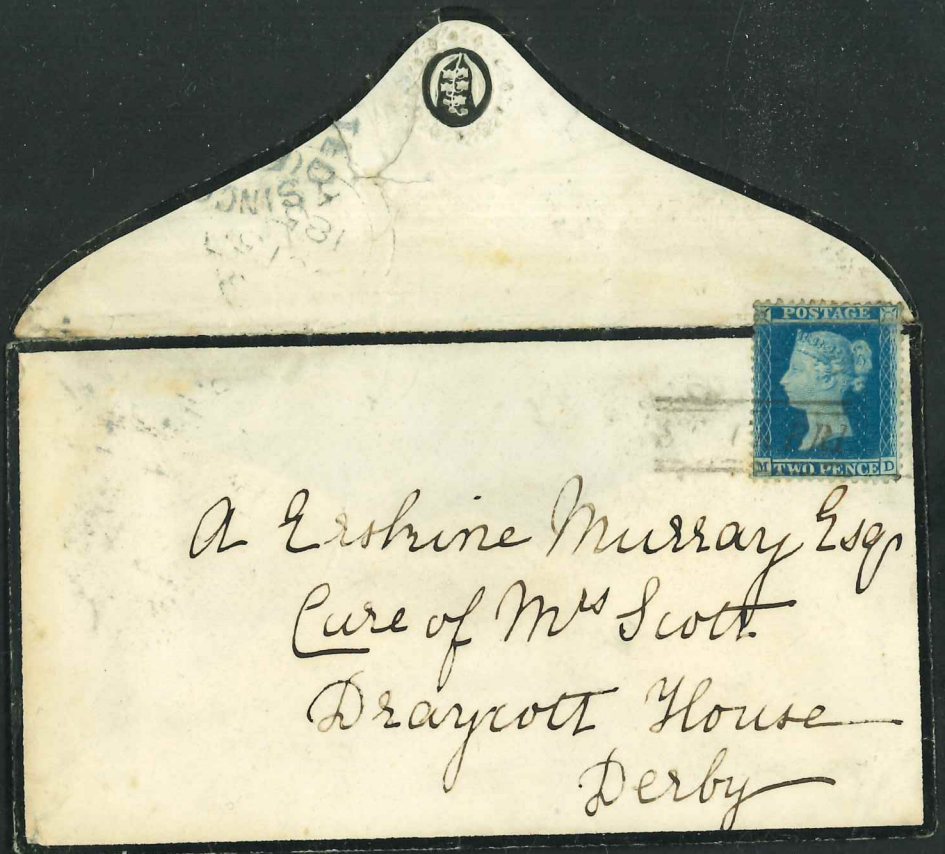 POSTAGE
M TWO PENCE D
A Erskine Murray Esqr
Care of Mrs Scott
Draycott House
Derby